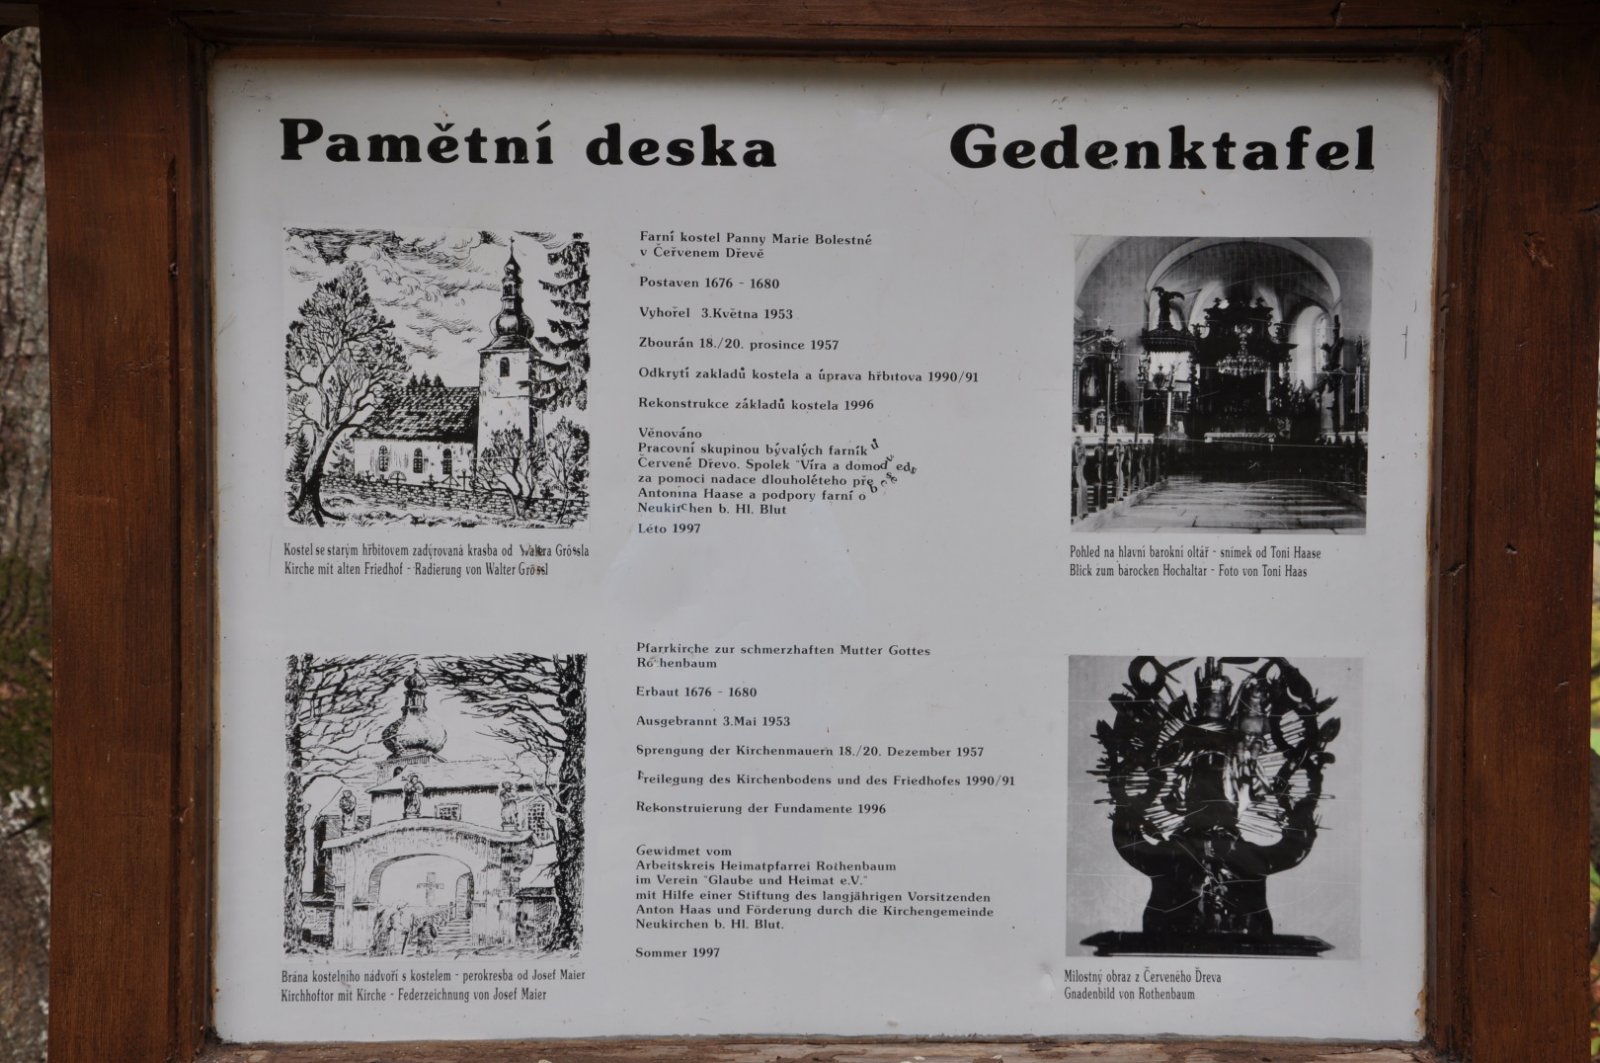 Pamětní deska
Gedenktafel
Farní kostel Panny Marie Bolestné
v Červenem Dřevě
Postaven 1676 - 1680
Vyhořel 3.Května 1953
Zbourán 18./20. prosince 1957
Odkrytí zakladů kostela a úprava hřbitova 1990/91
Rekonstrukce základů kostela 1996
Věnováno
Pracovní skupinou bývalých farník
Červené Dřevo. Spolek "Víra a domov"
za pomoci nadace dlouholéteho
Antonína Haase a podpory farní
Neukirchen b. Hl. Blut
Léto 1997
Kostel se starým hřbitovem zadýrovaná krasba od Waltera Grössla
Kirche mit alten Friedhof - Radierung von Walter Grössl
Pohled na hlavní barokní oltář - snímek od Toni Haase
Blick zum barocken Hochaltar - Foto von Toni Haas
Pfarrkirche zur schmerzhaften Mutter Gottes
Rothenbaum
Erbaut 1676 - 1680
Ausgebrannt 3.Mai 1953
Sprengung der Kirchenmauern 18./20. Dezember 1957
Freilegung des Kirchenbodens und des Friedhofes 1990/91
Rekonstruierung der Fundamente 1996
Gewidmet vom
Arbeitskreis Heimatpfarrei Rothenbaum
im Verein "Glaube und Heimat e.V."
mit Hilfe einer Stiftung des langjährigen Vorsitzenden
Anton Haas und Förderung durch die Kirchengemeinde
Neukirchen b. Hl. Blut.
Sommer 1997
Brána kostelního nádvoří s kostelem - perokresba od Josef Maier
Kirchhoftor mit Kirche - Federzeichnung von Josef Maier
Milostný obraz z Červeného Dřeva
Gnadenbild von Rothenbaum